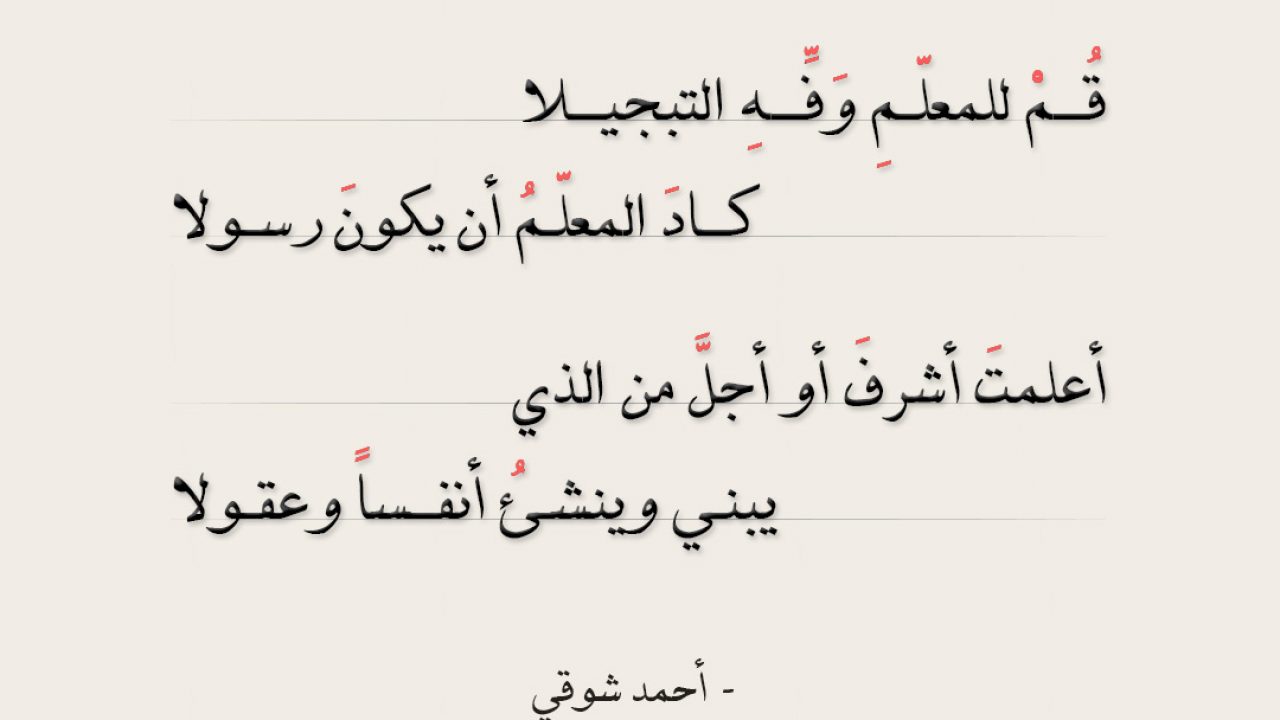 قُــمْ للمعلّـمِ وَفِّــهِ التبجيــلا
كــادَ المعلّـمُ أن يكونَ رسـولا
أعلمتَ أشرفَ أو أجلَّ من الذي
يبنـي وينشـئُ أنفـساً وعقـولا
- أحمد شوقي